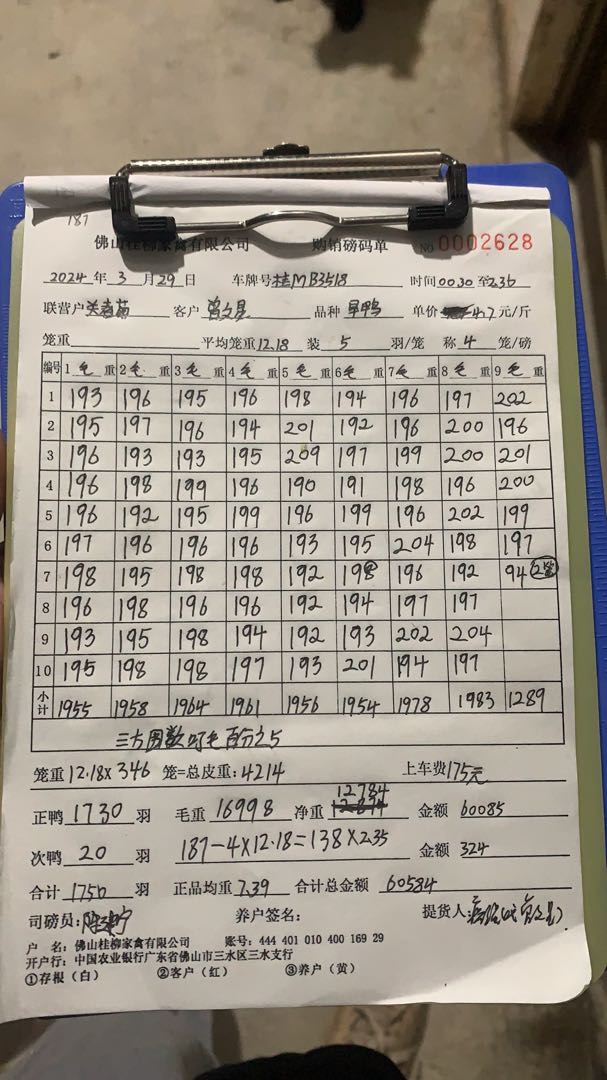 187
佛山桂柳家禽有限公司 购销磅码单 NO 0002628
2024 年 3 月 29 日 车牌号 桂MB3518 时间 0030 至 235
联营户 客户 曾文星 品种 旱鸭 单价 4.7 元/斤
笼重 平均笼重 12.18 装 5 羽/笼 称 4 笼/磅
编号 1 毛 重 2 毛 重 3 毛 重 4 毛 重 5 毛 重 6 毛 重 7 毛 重 8 毛 重 9 毛 重
1 193 196 195 196 198 194 196 197 202
2 195 197 196 194 201 192 196 200 196
3 196 193 193 195 209 197 199 200 201
4 196 198 199 196 190 191 198 196 200
5 196 192 195 199 196 199 196 202 199
6 197 196 196 196 193 195 204 198 197
7 198 195 198 198 192 198 196 192 94 2笼
8 196 198 196 196 192 194 197 197
9 193 195 198 194 192 193 202 204
10 195 198 198 197 193 201 194 197
小计 1955 1958 1964 1961 1956 1954 1978 1983 1289
三方因数 毛百分之5
笼重 12.18 x 346 笼=总皮重: 4214 上车费 175元
12784
正鸭 1730 羽 毛重 16998 净重 金额 60085
次鸭 20 羽 187-4x12.18=138x2.35 金额 324
合计 1750 羽 正品均重 7.39 合计总金额 60584
司磅员: 养户签名: 提货人:
户 名: 佛山桂柳家禽有限公司 账号: 444 401 010 400 169 29
开户行: 中国农业银行广东省佛山市三水区三水支行
①存根(白) ②客户(红) ③养户(黄)